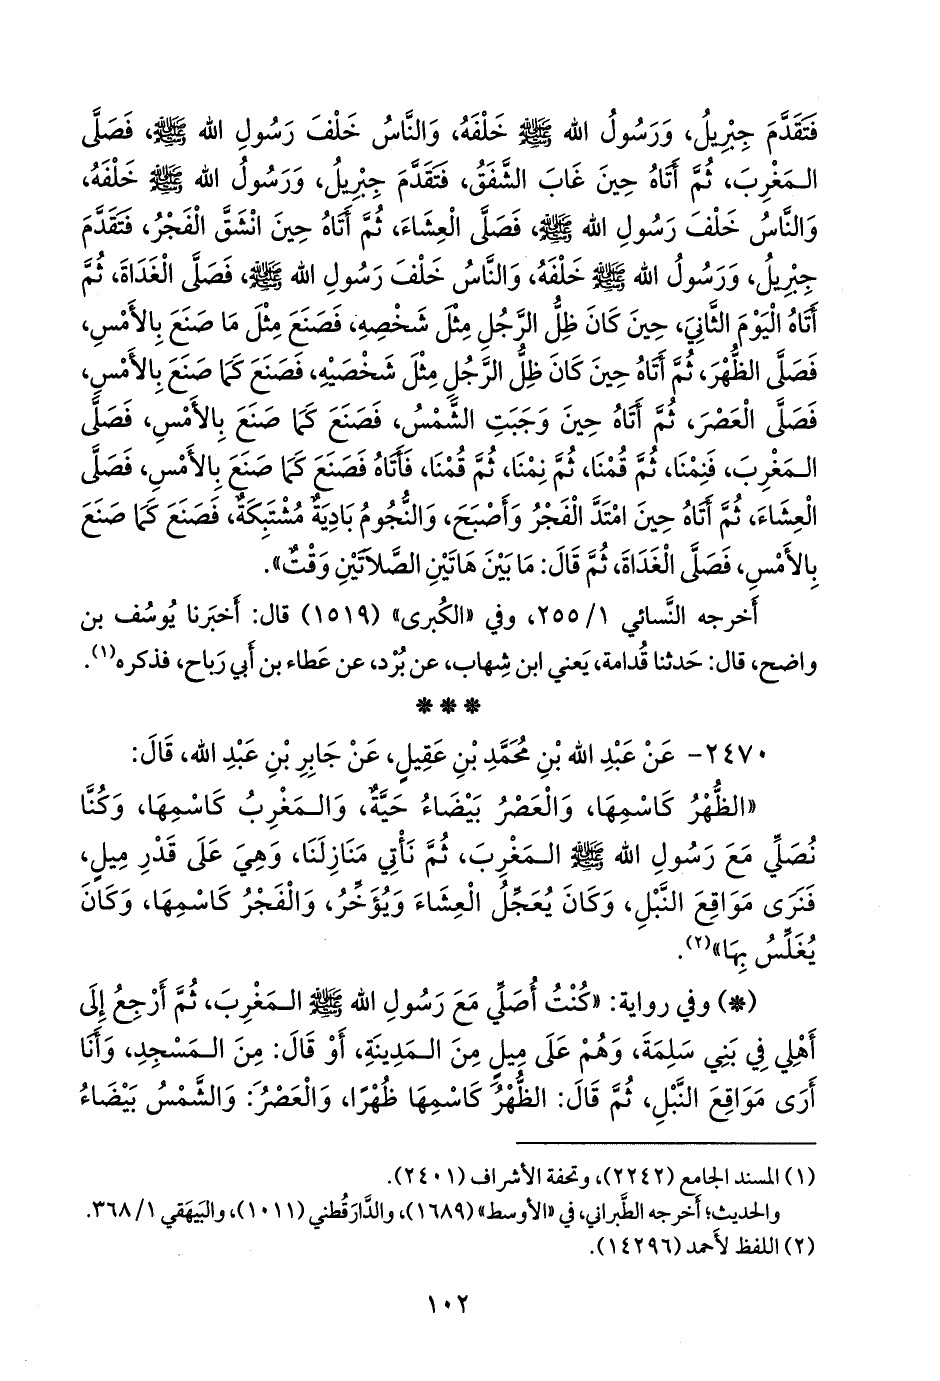 فَتَقَدَّمَ جِبْرِيلُ، وَرَسُولُ الله ﷺ خَلْفَهُ، وَالنَّاسُ خَلْفَ رَسُولِ الله ﷺ، فَصَلَّى
الـمَغْرِبَ، ثُمَّ أَتَاهُ حِينَ غَابَ الشَّفَقُ، فَتَقَدَّمَ جِبْرِيلُ، وَرَسُولُ الله ﷺ خَلْفَهُ،
وَالنَّاسُ خَلْفَ رَسُولِ الله ﷺ، فَصَلَّى الْعِشَاءَ، ثُمَّ أَتَاهُ حِينَ انْشَقَّ الْفَجْرُ، فَتَقَدَّمَ
جِبْرِيلُ، وَرَسُولُ الله ﷺ خَلْفَهُ، وَالنَّاسُ خَلْفَ رَسُولِ الله ﷺ، فَصَلَّى الْغَدَاةَ، ثُمَّ
أَتَاهُ الْيَوْمَ الثَّانِيَ، حِينَ كَانَ ظِلُّ الرَّجُلِ مِثْلَ شَخْصِهِ، فَصَنَعَ مِثْلَ مَا صَنَعَ بِالأَمْسِ،
فَصَلَّى الظُّهْرَ، ثُمَّ أَتَاهُ حِينَ كَانَ ظِلُّ الرَّجُلِ مِثْلَ شَخْصَيْهِ، فَصَنَعَ كَمَا صَنَعَ بِالأَمْسِ،
فَصَلَّى الْعَصْرَ، ثُمَّ أَتَاهُ حِينَ وَجَبَتِ الشَّمْسُ، فَصَنَعَ كَمَا صَنَعَ بِالأَمْسِ، فَصَلَّى
الـمَغْرِبَ، فَنِمْنَا، ثُمَّ قُمْنَا، ثُمَّ نِمْنَا، ثُمَّ قُمْنَا، فَأَتَاهُ فَصَنَعَ كَمَا صَنَعَ بِالأَمْسِ، فَصَلَّى
الْعِشَاءَ، ثُمَّ أَتَاهُ حِينَ امْتَدَّ الْفَجْرُ وَأَصْبَحَ، وَالنُّجُومُ بَادِيَةٌ مُشْتَبِكَةٌ، فَصَنَعَ كَمَا صَنَعَ
بِالأَمْسِ، فَصَلَّى الْغَدَاةَ، ثُمَّ قَالَ: مَا بَيْنَ هَاتَيْنِ الصَّلاَتَيْنِ وَقْتٌ».
أَخرجه النَّسائي ١/ ٢٥٥، وفي «الكُبرى» (١٥١٩) قال: أَخبَرنا يُوسُف بن
واضح، قال: حَدثنا قُدامة، يَعني ابن شِهاب، عن بُرْد، عن عَطاء بن أَبي رَباح، فذكره(١).
* * *
٢٤٧٠- عَنْ عَبْدِ الله بْنِ مُحَمَّدِ بْنِ عَقِيلٍ، عَنْ جَابِرِ بْنِ عَبْدِ الله، قَالَ:
«الظُّهْرُ كَاسْمِهَا، وَالْعَصْرُ بَيْضَاءُ حَيَّةٌ، وَالـمَغْرِبُ كَاسْمِهَا، وَكُنَّا
نُصَلِّي مَعَ رَسُولِ الله ﷺ الـمَغْرِبَ، ثُمَّ نَأْتِي مَنَازِلَنَا، وَهِيَ عَلَى قَدْرِ مِيلٍ،
فَنَرَى مَوَاقِعَ النَّبْلِ، وَكَانَ يُعَجِّلُ الْعِشَاءَ وَيُؤَخِّرُ، وَالْفَجْرُ كَاسْمِهَا، وَكَانَ
يُغَلِّسُ بِهَا»(٢).
(*) وفي رواية: «كُنْتُ أُصَلِّي مَعَ رَسُولِ الله ﷺ الـمَغْرِبَ، ثُمَّ أَرْجِعُ إِلَى
أَهْلِي فِي بَنِي سَلِمَةَ، وَهُمْ عَلَى مِيلٍ مِنَ الـمَدِينَةِ، أَوْ قَالَ: مِنَ الـمَسْجِدِ، وَأَنَا
أَرَى مَوَاقِعَ النَّبْلِ، ثُمَّ قَالَ: الظُّهْرُ كَاسْمِهَا ظُهْرًا، وَالْعَصْرُ: وَالشَّمْسُ بَيْضَاءُ
(١) المسند الجامع (٢٢٤٢)، وتحفة الأشراف (٢٤٠١).
والحديث؛ أَخرجه الطَّبراني، في «الأوسط» (١٦٨٩)، والدَّارَقُطني (١٠١١)، والبَيهَقي ١/ ٣٦٨.
(٢) اللفظ لأَحمد (١٤٢٩٦).
١٠٢